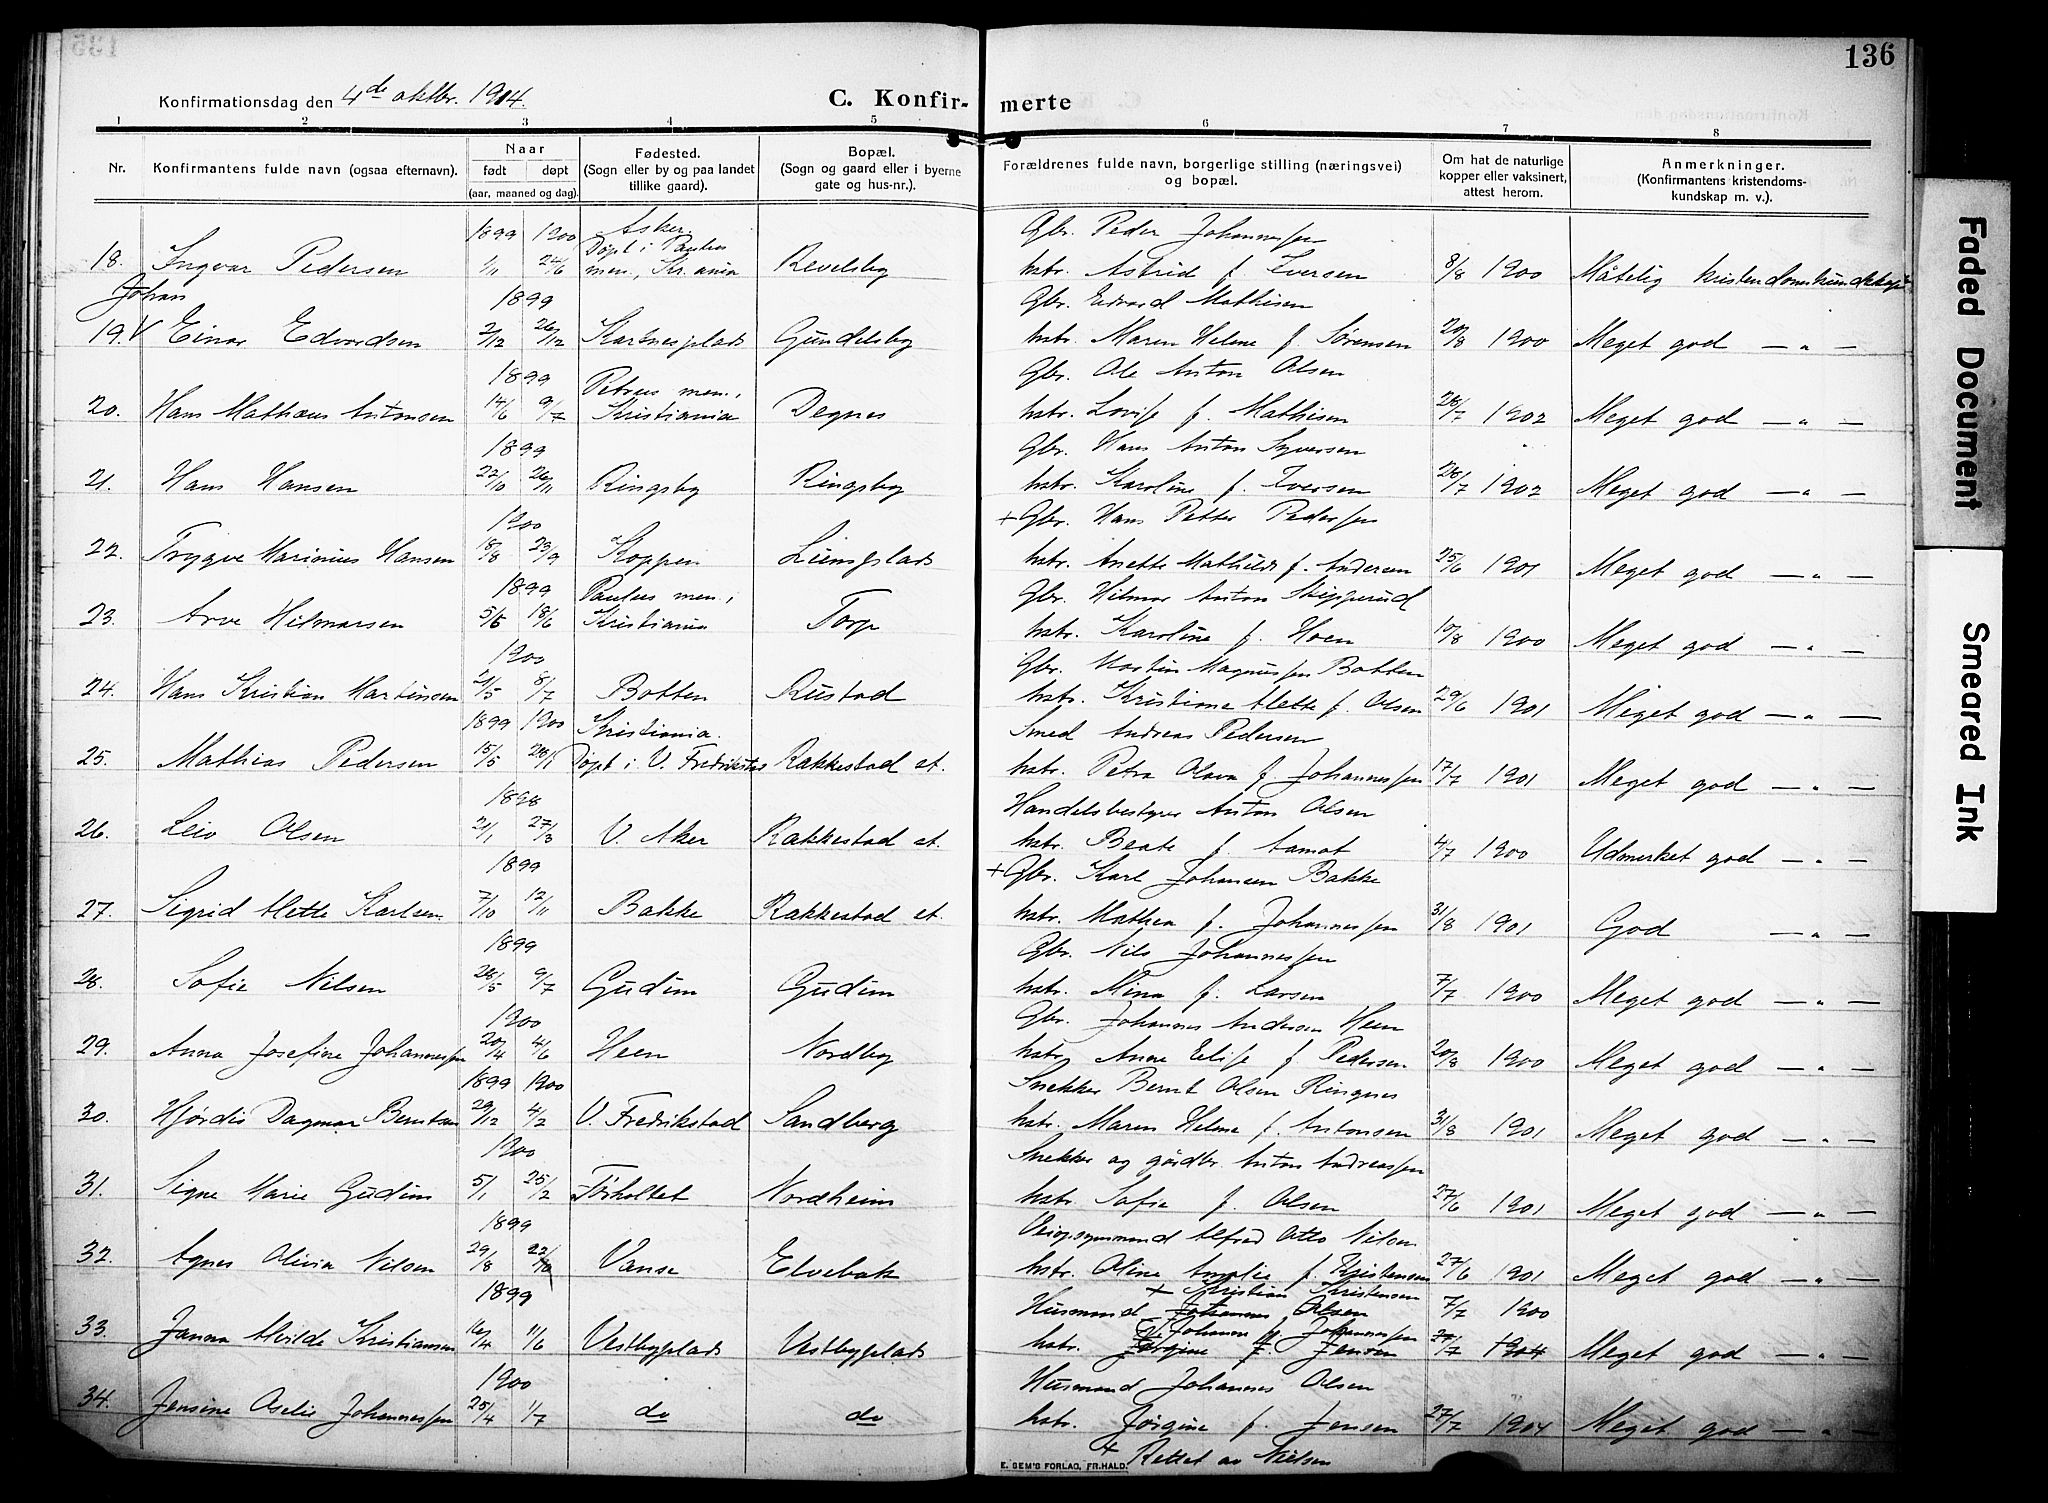 136
Konfirmationsdag den 4de oktbr. 1914.
C. Konfirmerte
1 2 3 4 5 6 7 8
Nr.
Konfirmantens fulde navn (ogsaa efternavn).
Naar
født døpt
(aar, maaned og dag).
Fødested.
(Sogn eller by og paa landet
tillike gaard).
Bopæl.
(Sogn og gaard eller i byerne
gate og hus-nr.).
Forældrenes fulde navn, borgerlige stilling (næringsvei)
og bopæl.
Om hat de naturlige
kopper eller vaksinert,
attest herom.
Anmerkninger.
(Konfirmantens kristendoms-
kundskap m. v.).
1899 1900 Asker. Gbr. Peder Johannessen
Døpt i Paulus
18. Ingvar Pedersen 1/11 24/6 men., Kr.ania Revelsby hstr. Astrid f. Iversen 8/8 1900 Måtelig kristendomskundskap
Johan 1899 Gbr. Edvard Mathisen
19. V Einar Edvardsen 2/12 26/12 Karlnesplads Gundelsby hstr. Maren Helene f. Sørensen 20/8 1900 Meget god — „ —
1899 Petrus men., Gbr. Ole Anton Olsen
20. Hans Mathæus Antonsen 14/6 9/7 Kristiania Degnes hstr. Lovise f. Mathisen 28/7 1902 Meget god — „ —
1899 Gbr. Hans Anton Syversen
21. Hans Hansen 22/10 26/11 Ringsby Ringsby hstr. Karoline f. Iversen 28/7 1902 Meget god — „ —
1900 + Gbr. Hans Petter Pedersen
22. Trygve Marinius Hansen 18/8 23/9 Koppen Lunsplads hstr. Anette Mathilde f. Andersen 25/6 1901 Meget god — „ —
1899 Paulus men., Gbr. Hilmar Anton Skipperud
23. Arve Hilmarsen 5/5 18/6 Kristiania Torp hstr. Karoline f. Hoen 10/8 1900 Meget god — „ —
1900 Gbr. Martin Magnussen Botten
24. Hans Kristian Martinsen 21/5 8/7 Botten Rustad hstr. Kristiane Alette f. Olsen 29/6 1901 Meget god — „ —
1899 1900 Kristiania. Smed Andreas Pedersen
25. Mathias Pedersen 15/5 28/1 Døpt i V. Fredrikstad Rakkestad st. hstr. Petra Olava f. Johannessen 17/7 1901 Meget god — „ —
1898 Handelsbestyrer Anton Olsen
26. Leiv Olsen 21/1 27/3 V. Aker Rakkestad st. hstr. Beate f. Aamot 4/7 1900 Udmerket god — „ —
1899 + Gbr. Karl Johansen Bakke
27. Sigrid Alette Karlsen 7/10 12/11 Bakke Rakkestad st. hstr. Mathea f. Johannessen 31/8 1901 God — „ —
1899 Gbr. Nils Johannessen
28. Sofie Nilsen 28/5 9/7 Gudim Gudim hstr. Mina f. Larsen 7/7 1900 Meget god — „ —
1900 Gbr. Johannes Andersen Heen
29. Anna Josefine Johannessen 20/4 4/6 Heen Nordby hstr. Anne Elise f. Pedersen 20/8 1900 Meget god — „ —
1899 1900 Snekker Bernt Olsen Ringnes
30. Hjørdis Dagmar Berntsen 29/12 4/2 V. Fredrikstad Sandberg hstr. Maren Helene f. Antonsen 31/8 1901 Meget god — „ —
1900 Snekker og gårdbr. Anton Andreassen
31. Signe Marie Gudim 5/1 25/2 Torholtet Nordheim hstr. Sofie f. Olsen 27/6 1901 Meget god — „ —
1899 Veiopsynsmand Alfred Otto Nilsen
32. Agnes Olivia Nilsen 29/8 22/10 Vanse Elvebak hstr. Oline Amalie f. Kristensen 27/6 1901 Meget god — „ —
1899 + Kristian Kristensen
Husmand Johannes Olsen 7/7 1900
Johanne f. Johannessen
33. Janna Alvilde Kristiansen 16/4 11/6 Vestbyplads Vestbyplads hstr. Jørgine f. Jensen 27/7 1904 Meget god — „ —
1900 Husmand Johannes Olsen
34. Jensine Aselie Johannessen 25/4 1/7 do do hstr. Jørgine f. Jensen 27/7 1904 Meget god — „ —
+ Rettet av Nielsen
E. SEM'S FORLAG, FR.HALD.
Faded Document
Smeared Ink